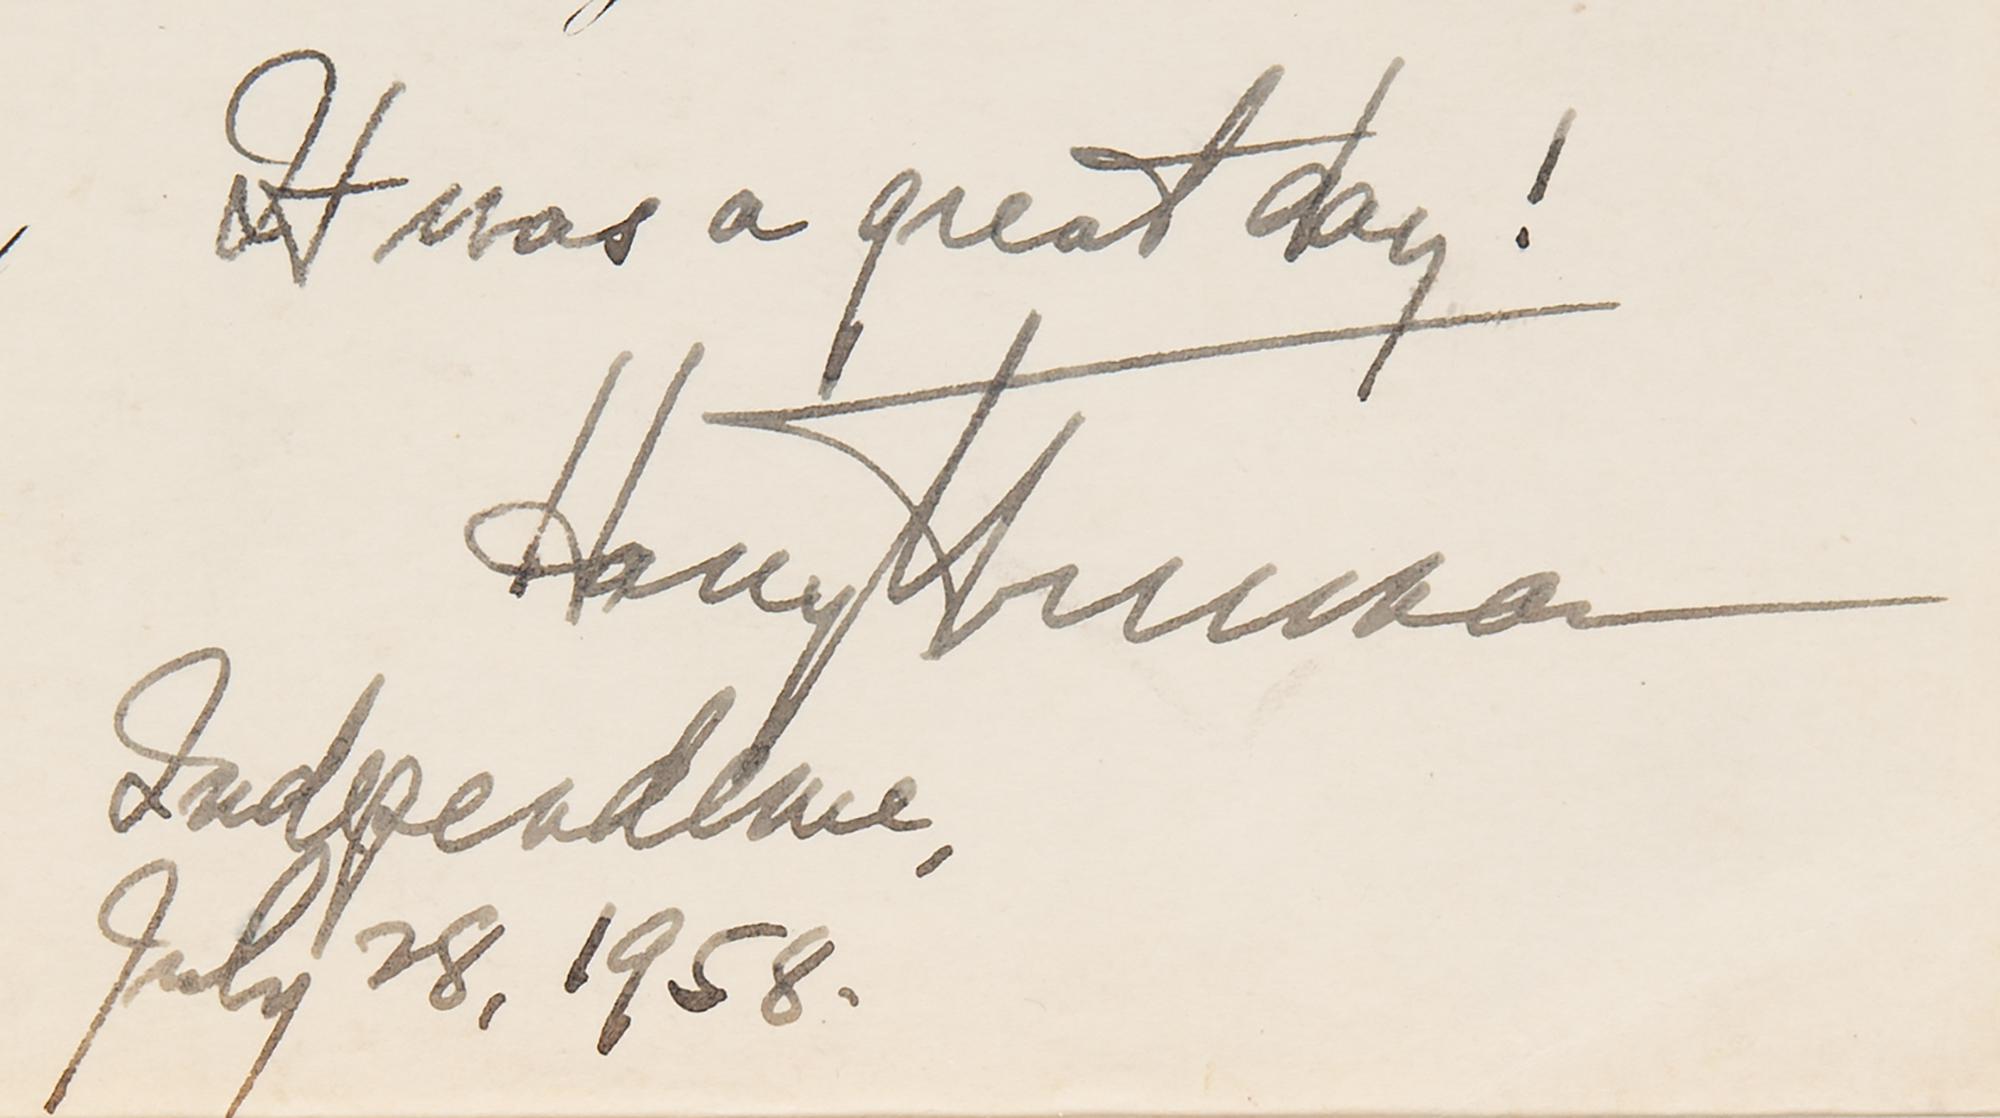 It was a great day!
Harry Truman
Independence,
July 28, 1958.